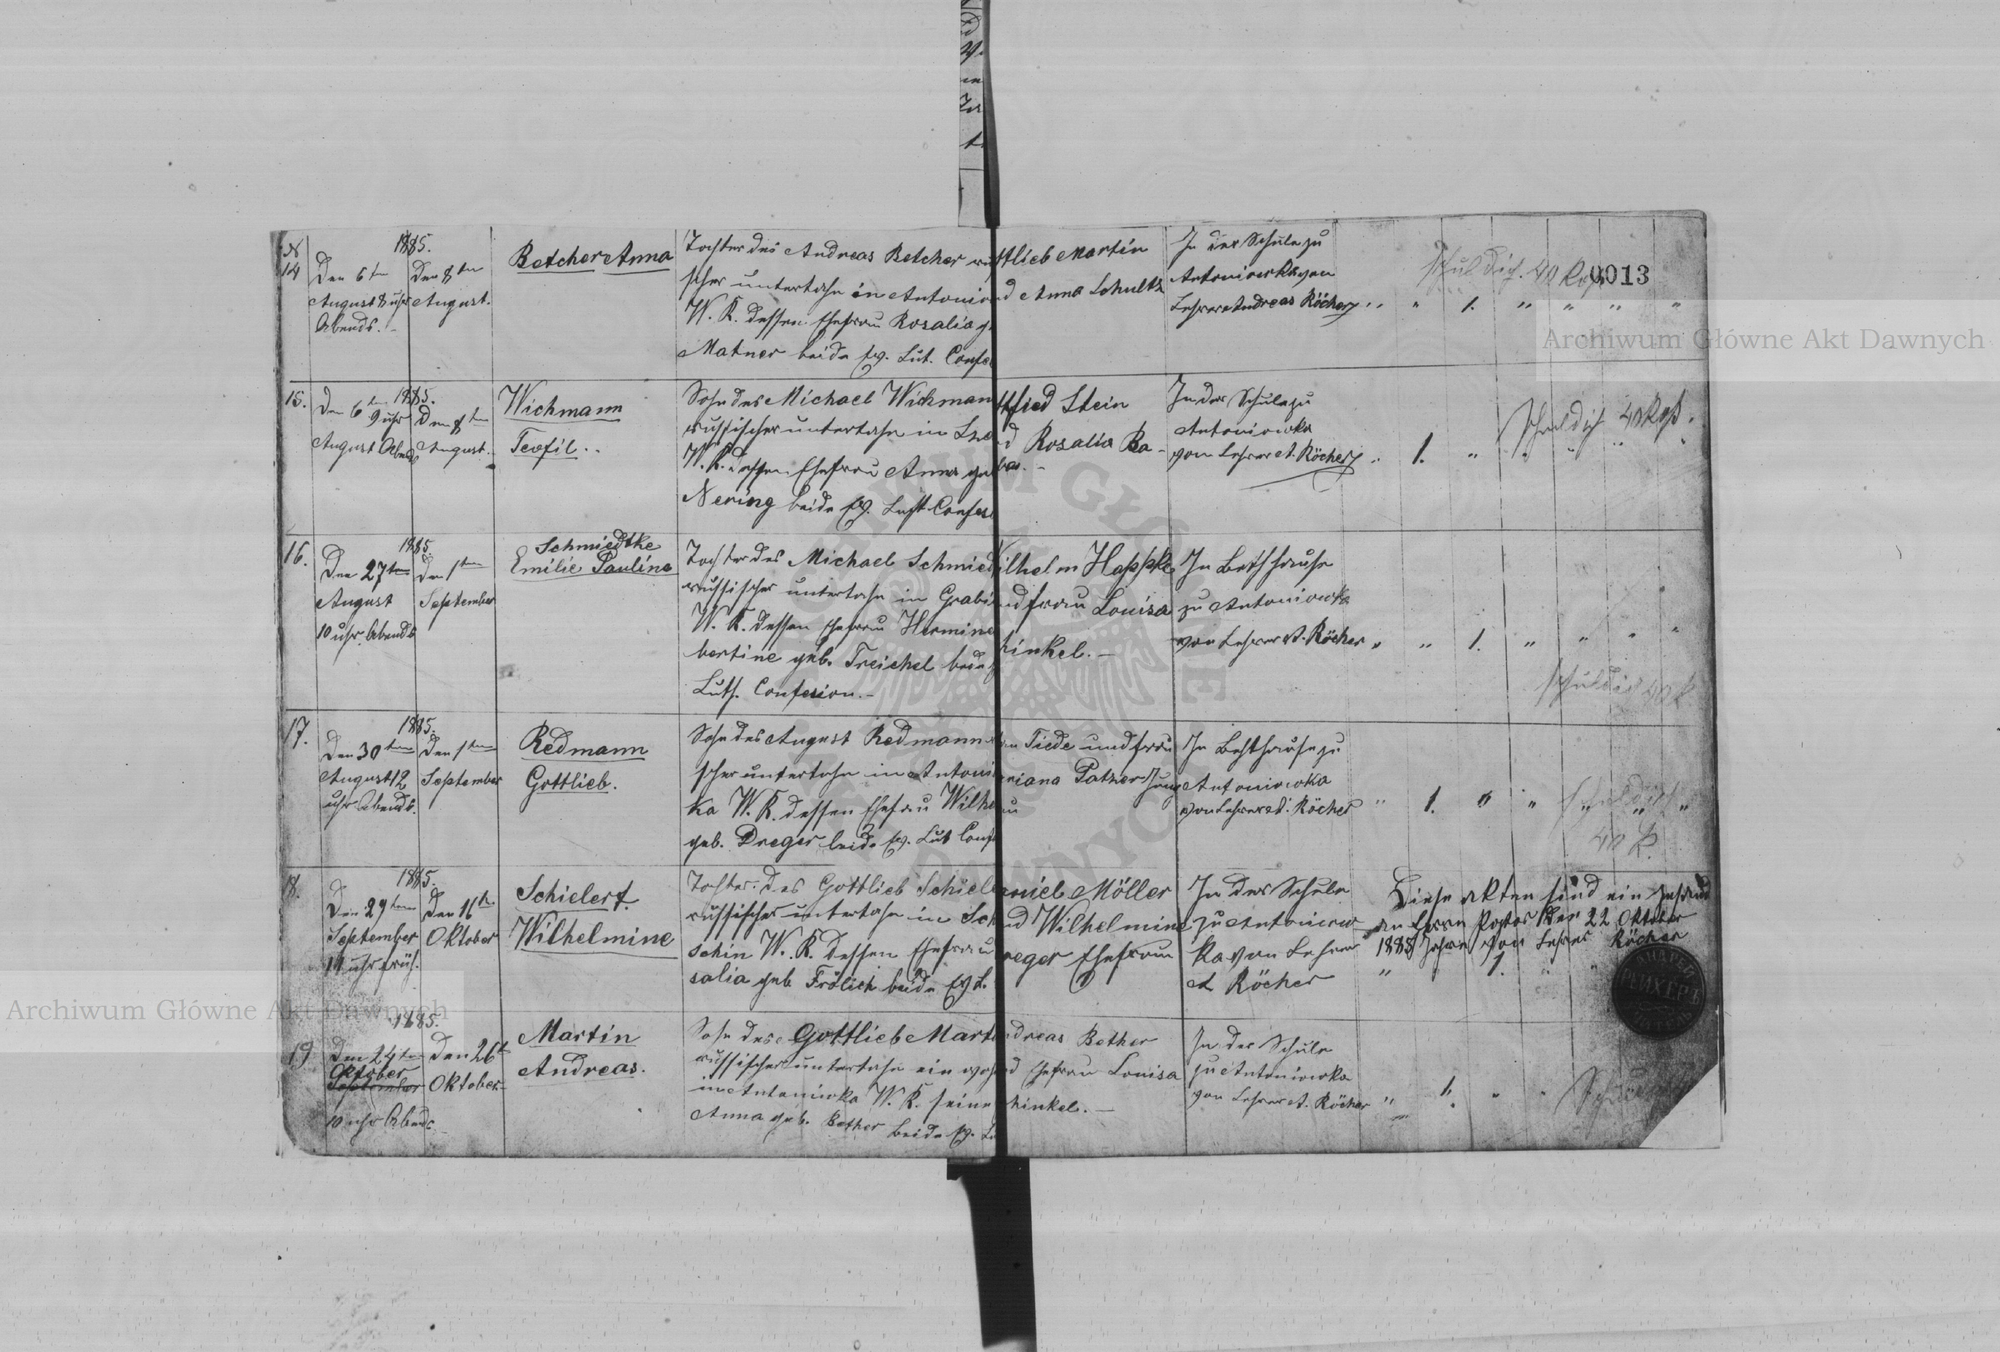 N 14
1885.
Den 6ten
August 8 uhr
Abends.
Den 8ten
August.
Betcher Anna
Tochter des Andreas Betcher
scher untertahn in Antonio
W. K. dessen Ehefrau Rosalia
Matner beide Ev. Lut. Confe
ttlieb Martin
d Anna Schultz
In der Schule zu
Antoniowka von
Lehrer Andreas Röcher
1.
schuldig. 40 Kop
0013
Archiwum Główne Akt Dawnych
15.
1885.
Den 6ten
9 uhr
August Abends
Den 8ten
August.
Wichmann
Teofil.
Sohn des Michael Wichman
russischer untertahn in
W. K. dessen Ehefrau Anna
Nering beide Ev. Luth. Confes
tfried Stein
d Rosalia Ba-
In der Schule zu
Antoniowka
von Lehrer A. Röcher
1.
Schuldig 40 Kop.
16.
1885.
Den 27ten
August
10 uhr Abends
Den 1ten
September
Schmiedtke
Emilie Pauline
Tochter des Michael Schmied
russischer untertahn in Grabi
W. K. dessen Ehefrau Hermine
bertine geb. Treichel beide
Luth. Confesion.
ilhelm Happke
nd frau Louisa
hinkel.
In Bethhause
zu Antoniowka
von Lehrer A. Röcher
1.
schuldig 40 K
17.
1885.
Den 30ten
August 12
uhr Abends.
Den 1ten
September
Redmann
Gottlieb.
Sohn des August Redmann
scher untertahn in Antoni
ka W. K. dessen Ehefrau Wilhe
geb. Dreger beide Ev. Lut Conf
Tiede und frau
riana Patzer
In Bethhause zu
Antoniowka
von Lehrer A. Röcher
1.
schuldig
40 K.
18.
1885.
Den 29ten
September
11 uhr früh.
Den 16te
Oktober
Schielert.
Wilhelmine
Tochter des Gottlieb Schiel
russischer untertahn in Sch
schin W. K. dessen Ehefrau
salia geb. Frölich beide Ev L.
niel Möller
d Wilhelmine
reger Ehefrau
In der Schule
zu Antoniow
ka von Lehrer
A Röcher
Diese akten sind ein
an Herrn Pastor Den 22 Oktober
1885 Jahre von Lehrer Röcher
1.
АНДРЕЙ
РЕЙХЕРЪ
Archiwum Główne Akt Dawnych
19
1885.
Den 24ten
Oktober
September
10 uhr Abends.
Den 26t
Oktober.
Martin
Andreas.
Sohn des Gottlieb Mart
russischer untertahn ein
in Antoniowka W. K. seine
Anna geb. Bether beide Ev. L
dreas Bether
d Ehefrau Louisa
hinkel.
In der Schule
zu Antoniowka
von Lehrer A. Röcher
1.